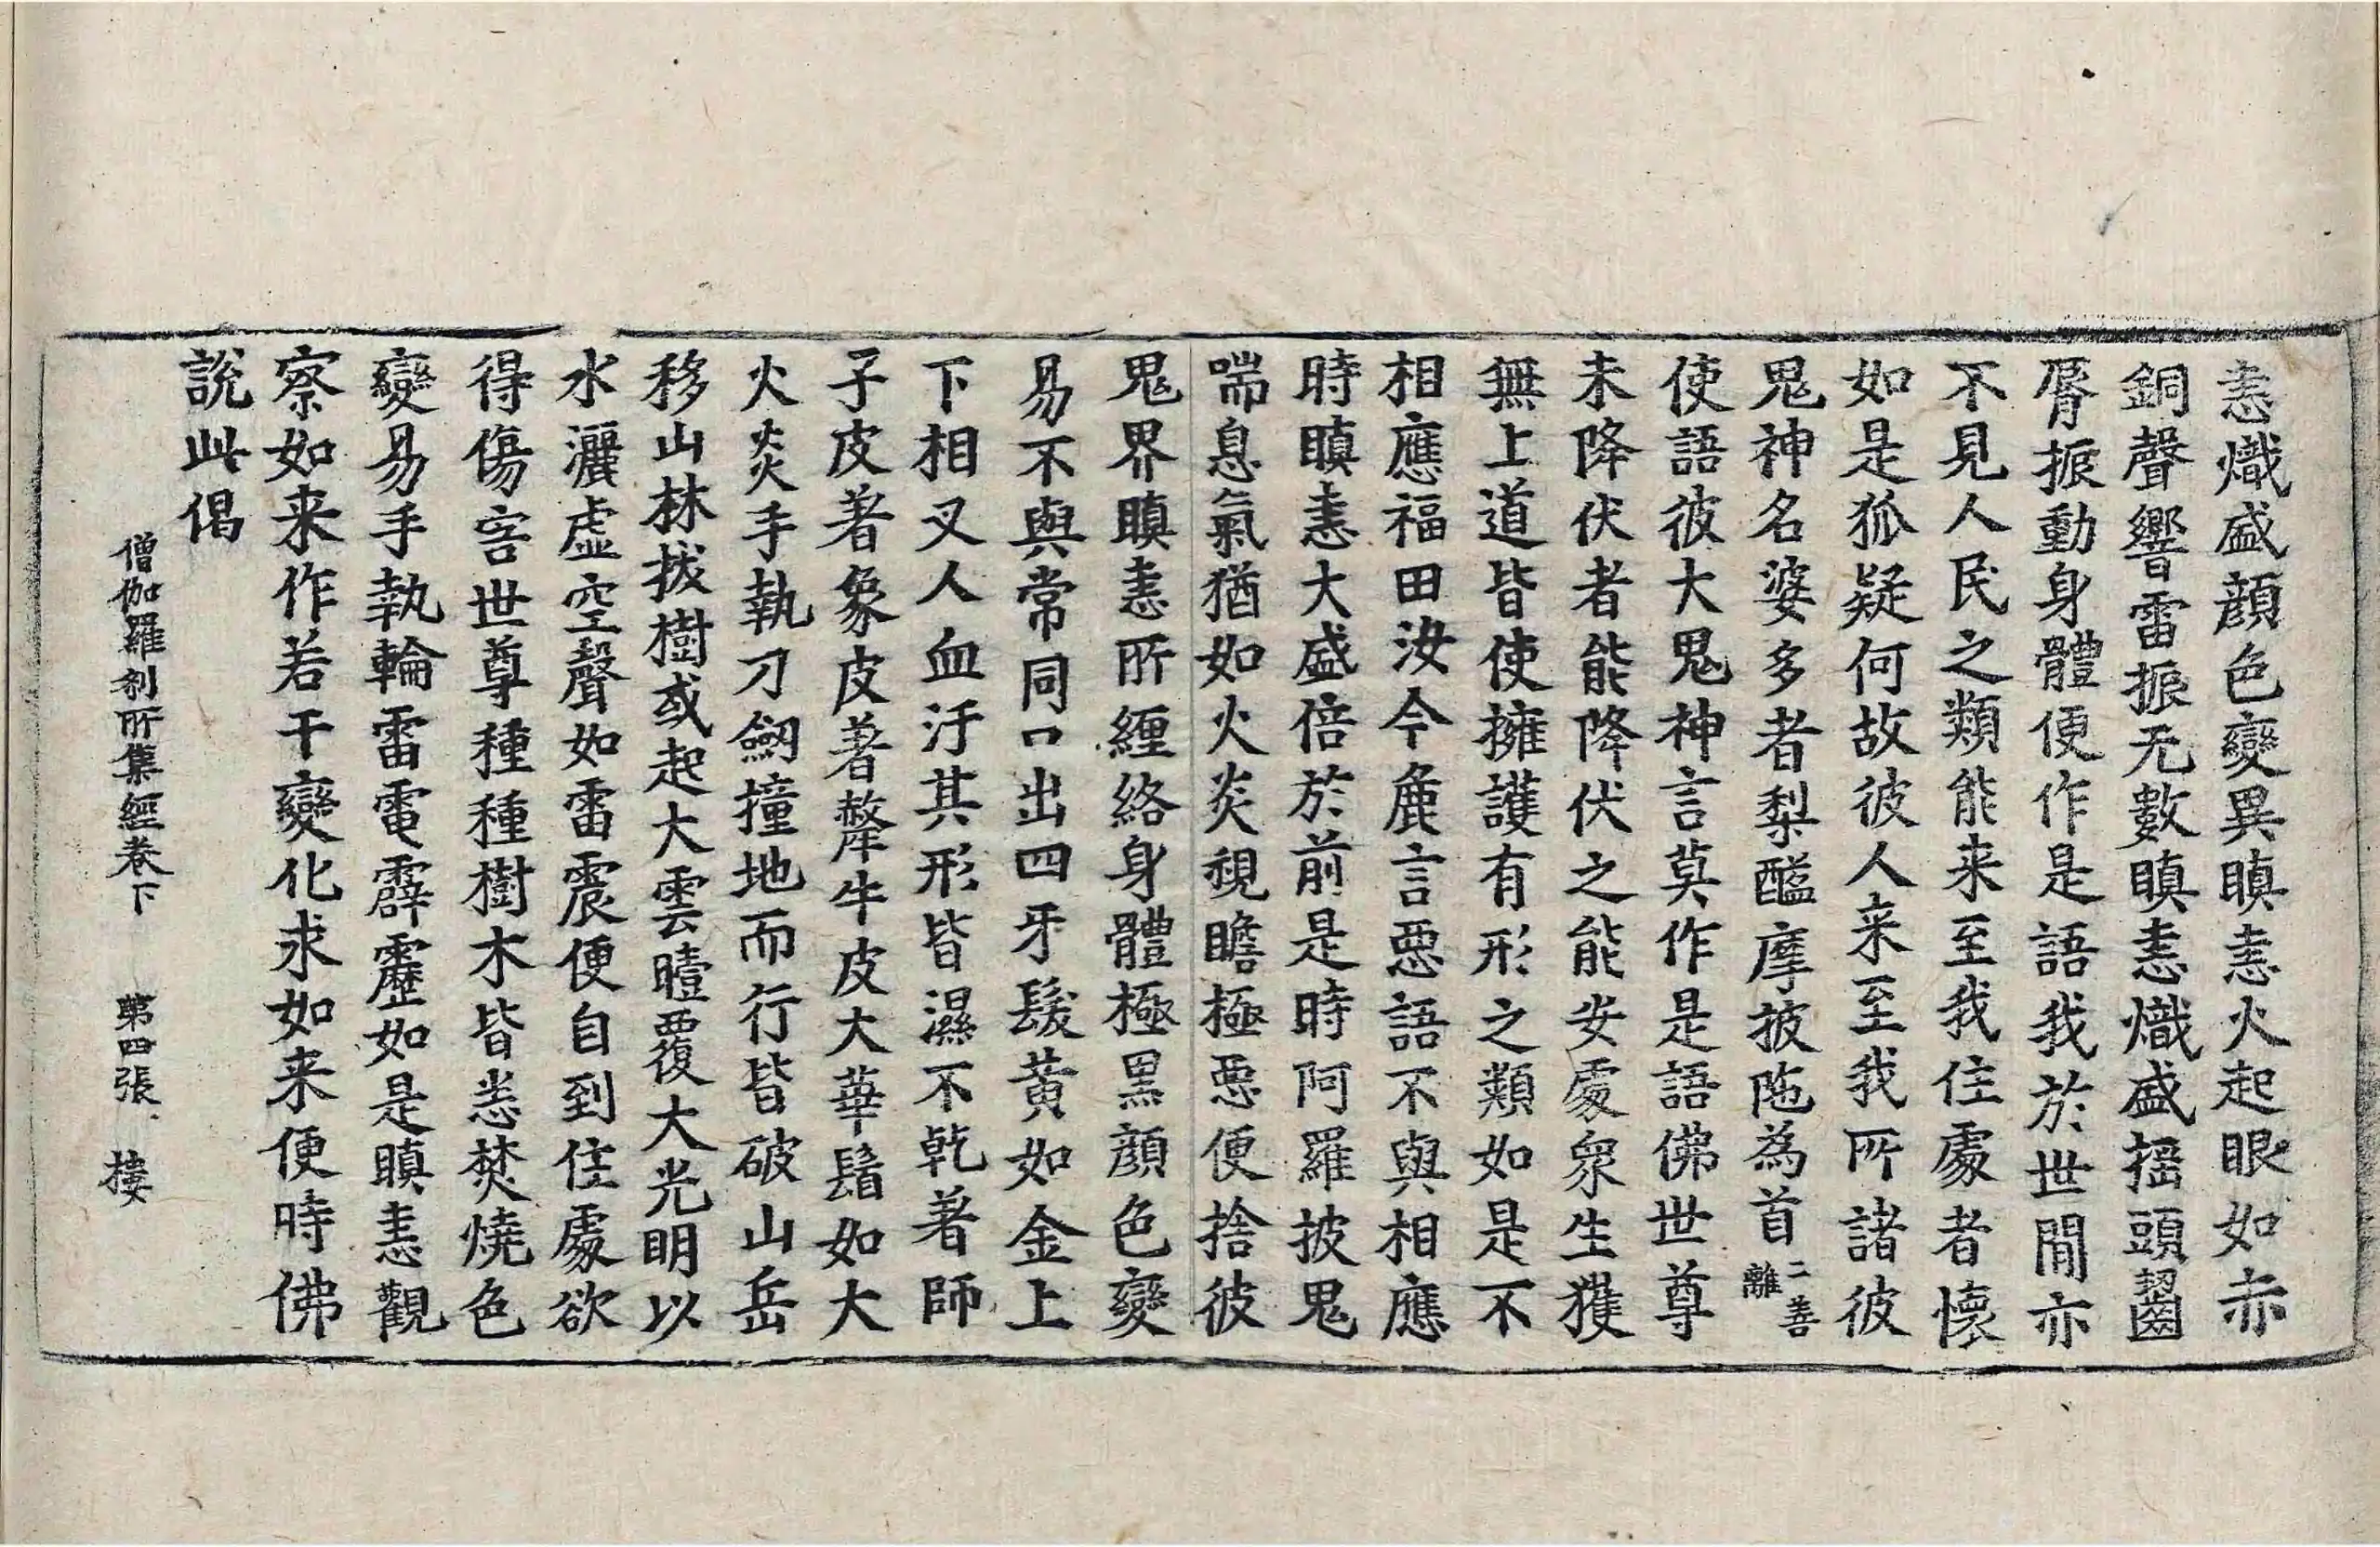 恚熾盛顔色變異瞋恚火起眼如赤
銅聲響雷振无數瞋恚熾盛摇頭齧
脣振動身體便作是語我於世閒亦
不見人民之類能来至我住處者懷
如是狐疑何故彼人来至我所諸彼
鬼神名婆多耆梨醯摩披陁為首二善離
使語彼大鬼神言莫作是語佛世尊
未降伏者能降伏之能安處衆生獲
無上道皆使擁護有形之類如是不
相應福田汝今麁言惡語不與相應
時瞋恚大盛倍於前是時阿羅披鬼
喘息氣猶如火炎視瞻極惡便捨彼
鬼界瞋恚所纏絡身體極黑顔色變
易不與常同口出四牙髮黃如金上
下相叉人血汙其形皆濕不乾著師
子皮著象皮著犛牛皮大華鬘如大
火炎手執刀劒撞地而行皆破山岳
移山林拔樹或起大雲曀覆大光明以
水灑虛空聲如雷震便自到住處欲
得傷害世尊種種樹木皆悉焚燒色
變易手執輪雷電霹靂如是瞋恚觀
察如来作若干變化求如来便時佛
說此偈
僧伽羅刹所集經卷下 第四張 㨨